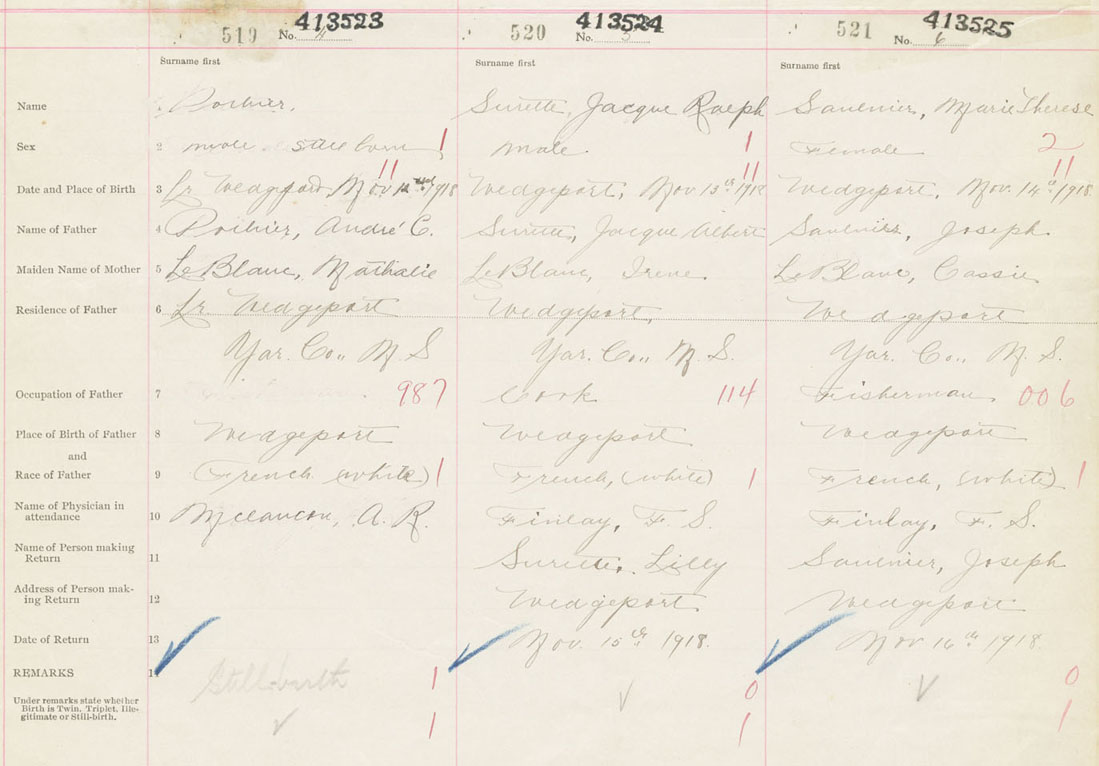 413523 413524 413525
519 No. 4 520 No. 5 521 No. 6
Surname first Surname first Surname first
Name Pothier, Surette, Jacque Ralph Saulnier, Marie Therese
Sex 2 male still born 1 male. 1 Female 2
11 11 11
Date and Place of Birth 3 Lr Wedgeport, Nov 1918 Wedgeport, Nov 13th 1918 Wedgeport, Nov. 14th 1918
Name of Father 4 Pothier, André C. Surette, Jacque Albert Saulnier, Joseph
Maiden Name of Mother 5 LeBlanc, Nathalie LeBlanc, Irene LeBlanc, Cassie
Residence of Father 6 Lr. Wedgeport Wedgeport, Wedgeport
Yar. Co., N S Yar. Co., N. S. Yar. Co., N. S.
Occupation of Father 7 987 Cook 114 Fisherman 006
Place of Birth of Father 8 Wedgeport Wedgeport Wedgeport
and
Race of Father 9 French (white) 1 French, (white) 1 French, (white) 1
Name of Physician in
attendance 10 Melancon, A. R. Finlay, F. S. Finlay, F. S.
Name of Person making
Return 11 Surette, Lilly Saulnier, Joseph
Address of Person mak-
ing Return 12 Wedgeport Wedgeport
Date of Return 13 Nov. 15th 1918. Nov 16th 1918
REMARKS Still-birth 1 0 0
Under remarks state whether
Birth is Twin, Triplet, Ille-
gitimate or Still-birth. 1 1 1